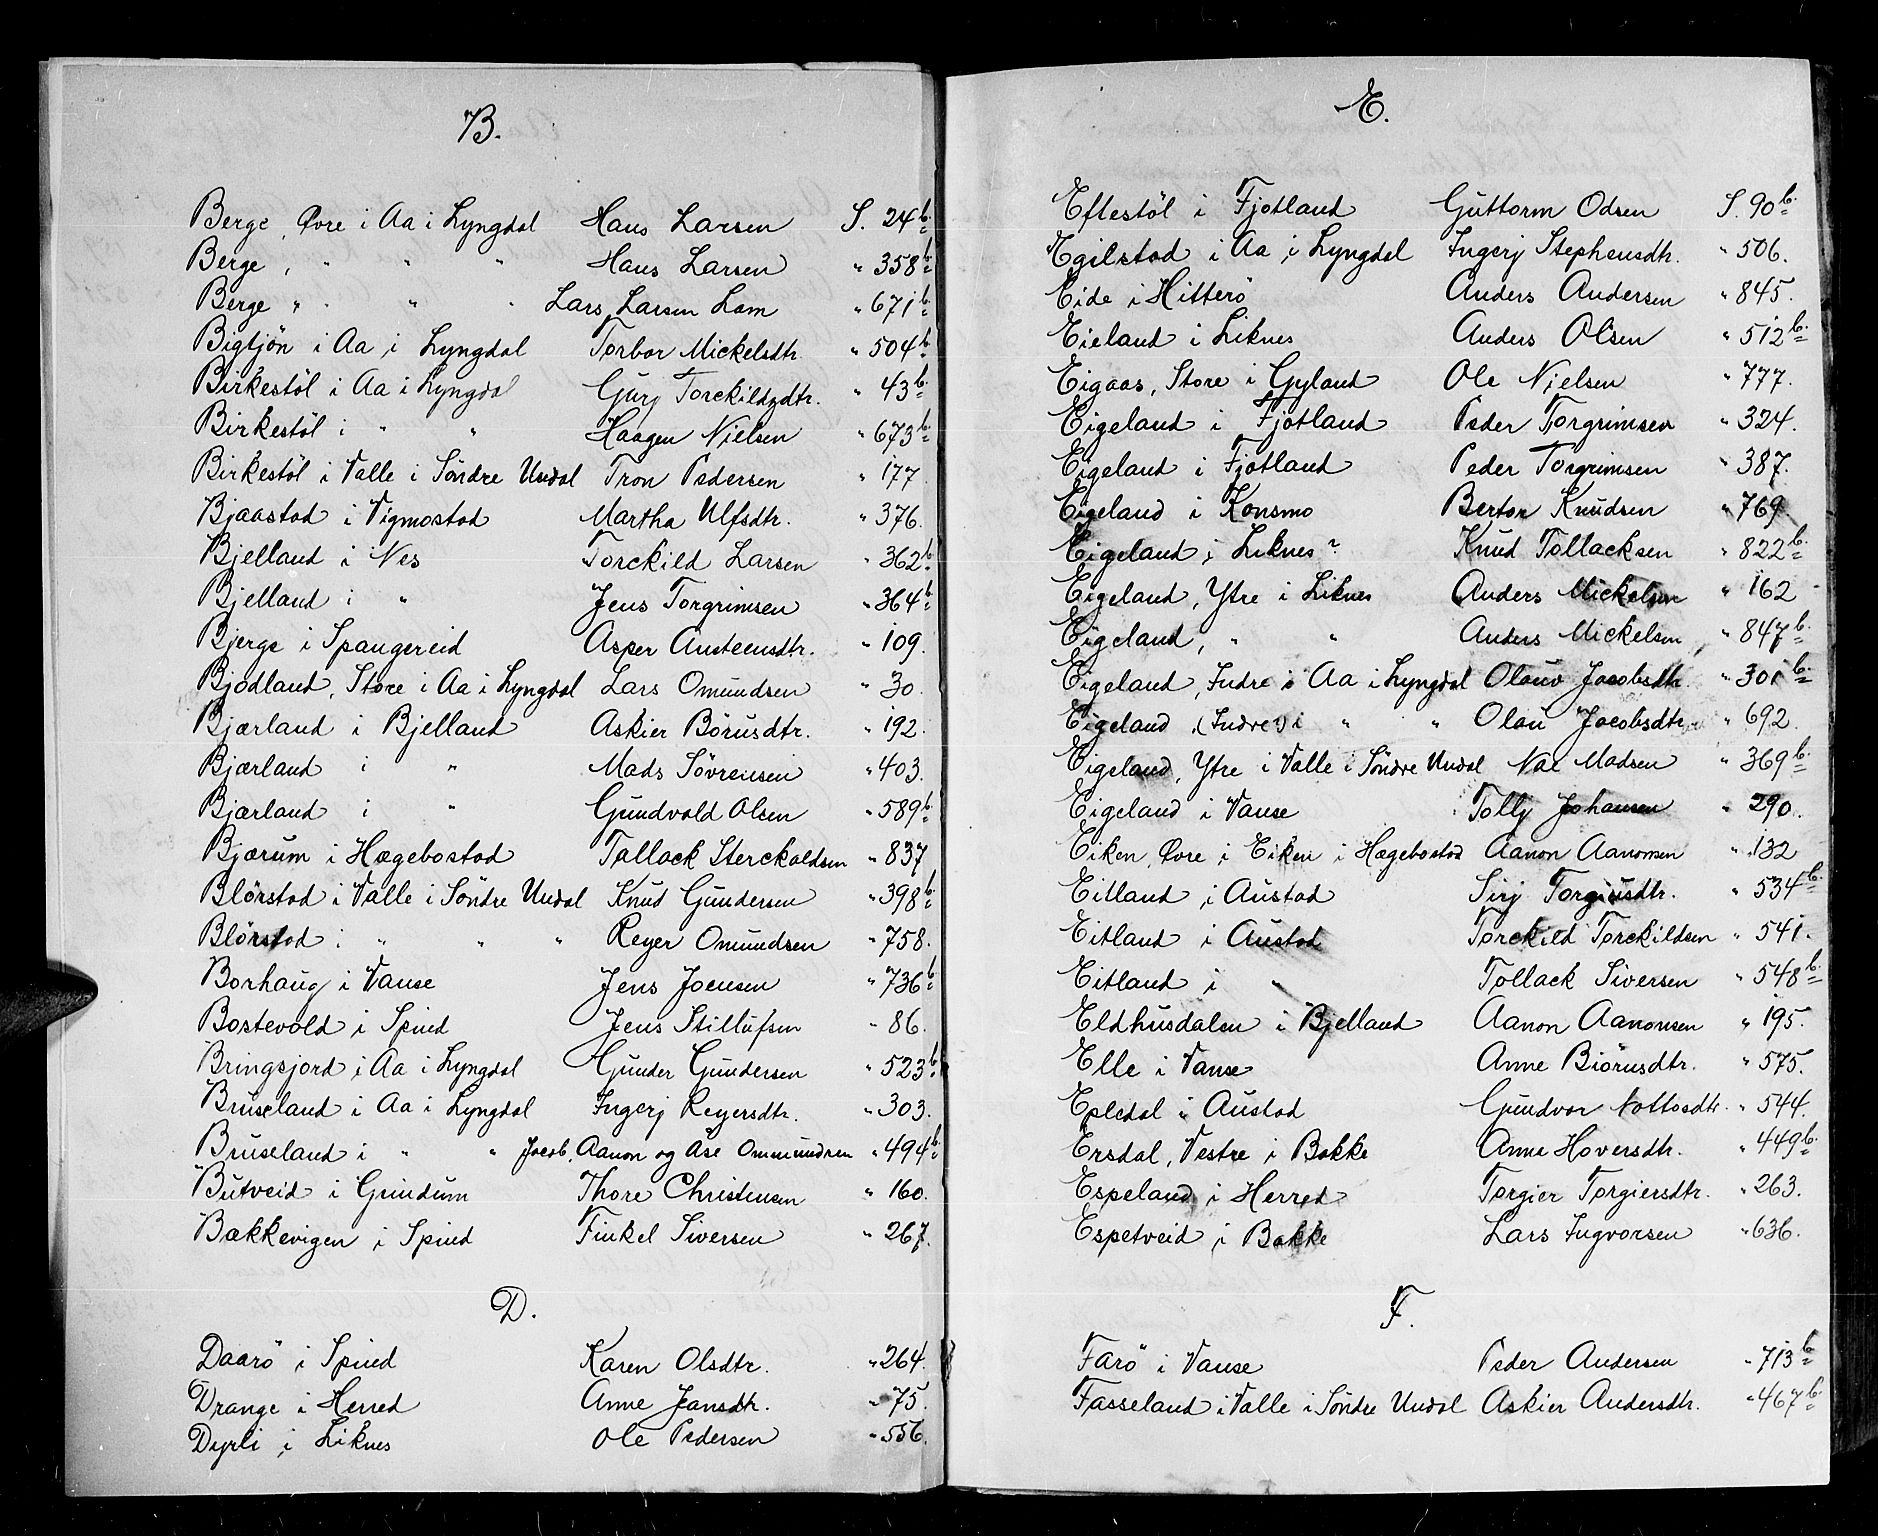 B.
Berge, Øvre i Aa i Lyngdal Hans Larsen S. 24b.
Berge, " " " Hans Larsen " 358b.
Berge " " " " Lars Larsen Lom " 671b.
Bigtjön i Aa i Lyngdal Torbor Mickelsdtr. " 504b.
Birkestöl i Aa i Lyngdal Gurj Torckildsdtr. " 43b.
Birkestöl i " " Haagen Nielsen " 673b.
Birkestöl i Valle i Söndre Undal Tron Pedersen " 177
Bjaastad i Vigmostad Martha Ulfsdtr. " 376.
Bjelland i Nes Torckild Larsen " 362b.
Bjelland i " Jens Torgrimsen " 364b.
Bjerge i Spangereid Asper Austeensdtr. " 109.
Bjodland, Store i Aa i Lyngdal Lars Omundsen " 30.
Bjærland i Bjelland Askier Börusdtr. " 192.
Bjærland i " Mads Sövrensen " 403.
Bjærland i " Gundvald Olsen " 589b.
Bjærum i Hægebostad Tallack Sterckaldsen " 837
Blörstad i Valle i Söndre Undal Knud Gundersen " 398b.
Blörstad i " " " Reyer Omundsen " 758.
Borhaug i Vanse Jens Joensen " 736b.
Bostevold i Spind Jens Stillufsen " 86.
Bringsjord i Aa i Lyngdal Gunder Gundersen " 523b.
Bruseland i Aa i Lyngdal Ingerj Reyersdtr. " 303.
Bruseland i " " Jacob, Aanon og Åse Ommundsen " 494b.
Butveid i Grindum Thore Christensen " 160.
Bækkevigen i Spind Finkel Siversen " 267.
D.
Daarö i Spind Karen Olsdtr. " 264.
Drange i Herred Anne Jansdtr. " 75.
Dyrli i Liknes Ole Pedersen " 556.
E.
Eftestöl i Fjotland Guttorm Odsen S. 90b.
Egilstad i Aa i Lyngdal Ingerj Stephensdtr. " 506.
Eide i Hitterö Anders Andersen " 845.
Eieland i Liknes Anders Olsen " 512b.
Eigaas, Store i Gyland Ole Njelsen " 777.
Eigeland i Fjotland Peder Torgrimsen " 324.
Eigeland i Fjotland Peder Torgrimsen " 387.
Eigeland i Konsmo Bertor Knudsen " 769
Eigeland i Liknes? Knud Tollacksen " 822b.
Eigeland, Ytre i Liknes Anders Mickelsen " 162
Eigeland, " " Anders Mickelsen " 847b.
Eigeland, Indre i Aa i Lyngdal Olouv Jacobsdtr. " 301b.
Eigeland (Indre?) i " " Olau Jacobsdtr. " 692.
Eigeland, Ytre i Valle i Söndre Undal Nae Madsen " 369b.
Eigeland i Vanse Tolly Johansen " 290.
Eiken, Øvre i Eiken i Hægebostad Aanon Aanonsen " 132
Eitland i Austad Sirj Torgiusdtr. " 534b.
Eitland i Austad Torckild Torckildsen " 541.
Eitland i " Tollack Siversen " 548b.
Eldhusdalen i Bjelland Aanon Aanonsen " 195.
Elle i Vanse Anne Biörusdtr. " 575.
Epledal i Austad Gundvor Nottosdtr. " 544.
Ersdal, Vestre i Bakke Anne Hoversdtr. " 449b.
Espeland i Herred Torgier Torgiersdtr. " 263.
Espetveid i Bakke Lars Ingvorsen " 636.
F.
Farö i Vanse Peder Andersen " 713b.
Fasseland i Valle i Söndre Undal Askier Andersdtr. " 467b.